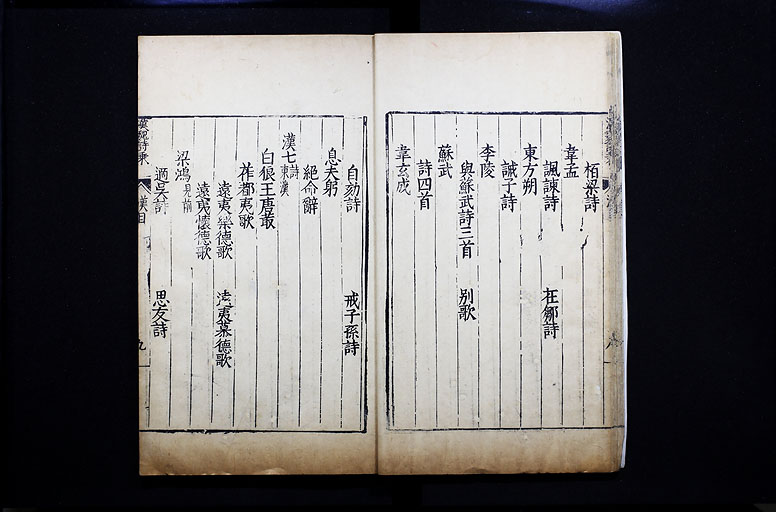 栢梁詩
韋孟
諷諫詩 在鄒詩
東方朔
誡子詩
李陵
與蘇武詩三首 別歌
蘇武
詩四首
韋玄成
自劾詩 戒子孫詩
息夫躬
絕命辭
漢七詩 東漢
白狼王唐菆
莋都夷歌
遠夷樂德歌 遠夷慕德歌
遠夷懷德歌
梁鴻 見前
適吳詩 思友詩
漢魏詩乘 漢目 九